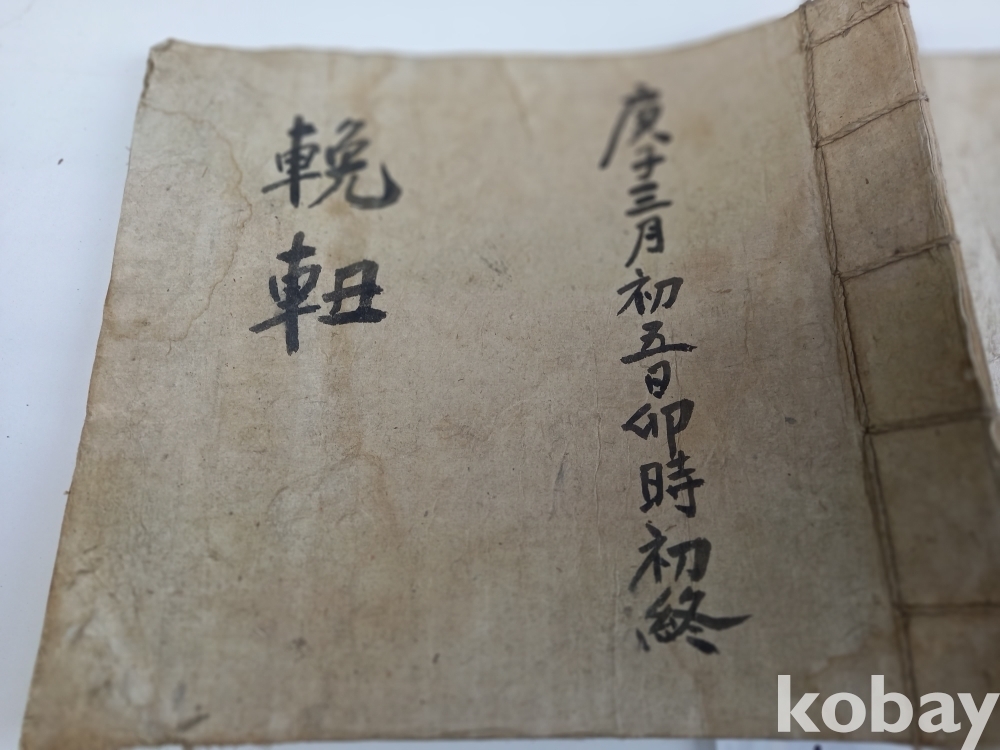 庚子三月初五日卯時初終
輓
䡎
kobay